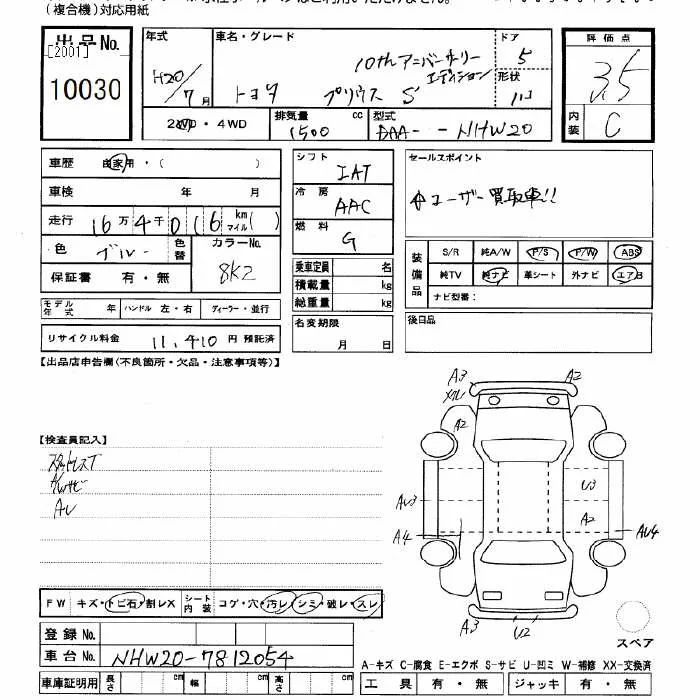 (複合機)対応用紙
出品No.
[2001]
10030
年式 車名・グレード ドア 評価点
H20/7月 トヨタ プリウス S 10thアニバーサリーエディション 5 3.5
形状
2WD・4WD 排気量 1500 cc 型式 DAA--NHW20 内装 C
車歴 自家用・( )
車検 年 月
走行 16万4千0(6 km マイル( )
色 ブルー 色替 カラーNo. 8K2
保証書 有・無
モデル年式 年 ハンドル 左・右 ディーラー・並行
リサイクル料金 11,410 円 預託済
シフト IAT
冷房 AAC
燃料 G
乗車定員 名
積載量 kg
総重量 kg
名変期限
月 日
セールスポイント
ユーザー買取車!!
装備品 S/R 純A/W P/S P/W ABS
純TV 純ナビ 革シート 外ナビ エアB
ナビ型番:
後日品
【出品店申告欄(不良箇所・欠品・注意事項等)】
【検査員記入】
スタットレスT
A/Wサビ
AU
A3 A2
A2
U3
AU3 A2
A4 AU4
A3 U2
スペア
FW キズ・トビ石・割レX シート内装 コゲ・穴・汚レ・シミ・破レ・スレ
登録No.
車台No. NHW20-7812054
車庫証明用 長さ cm 幅 cm 高さ cm
A-キズ C-腐食 E-エクボ S-サビ U-凹ミ W-補修 XX-交換済
工具 有・無 ジャッキ 有・無